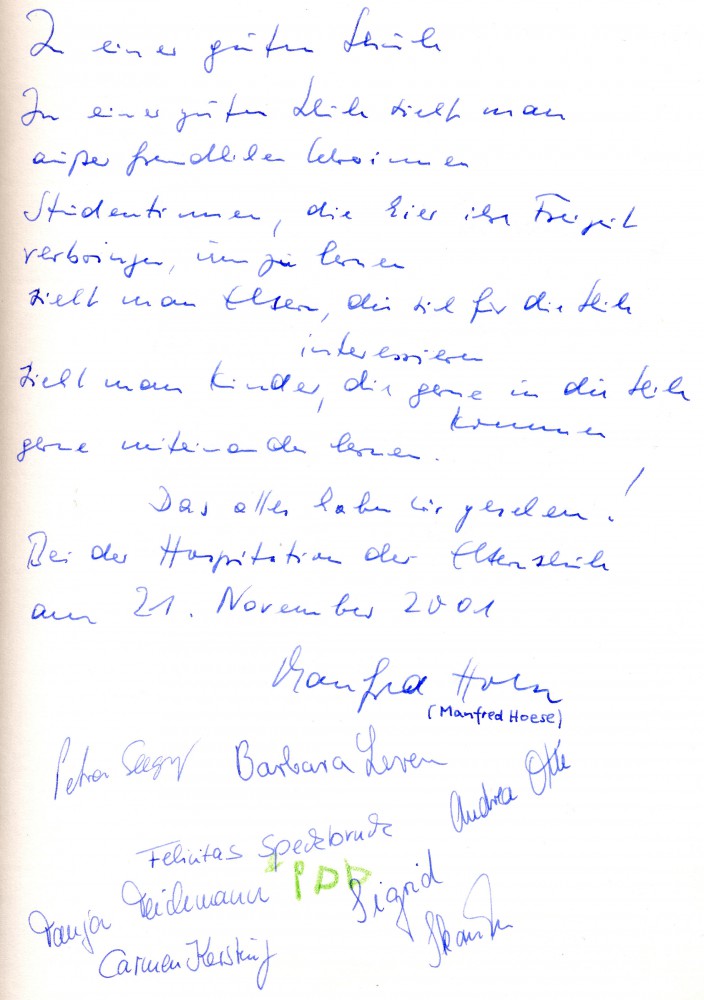 In einer guten Schule
In einer guten Schule sieht man
außer freundlichen Lehrerinnen
Studentinnen, die hier ihre Freizeit
verbringen, um zu lernen
sieht man Eltern, die sich für die Schule
interessieren
sieht man Kinder, die gerne in die Schule
kommen
gerne miteinander lernen.
Das alles haben wir gesehen!
Bei der Hospitation der Elternschule
am 21. November 2001
Manfred Hoese
(Manfred Hoese)
Petra
Barbara Leven
Andrea Otte
Felicitas
PDP
Tanja Weidemann
Sigrid
Carmen Kersting